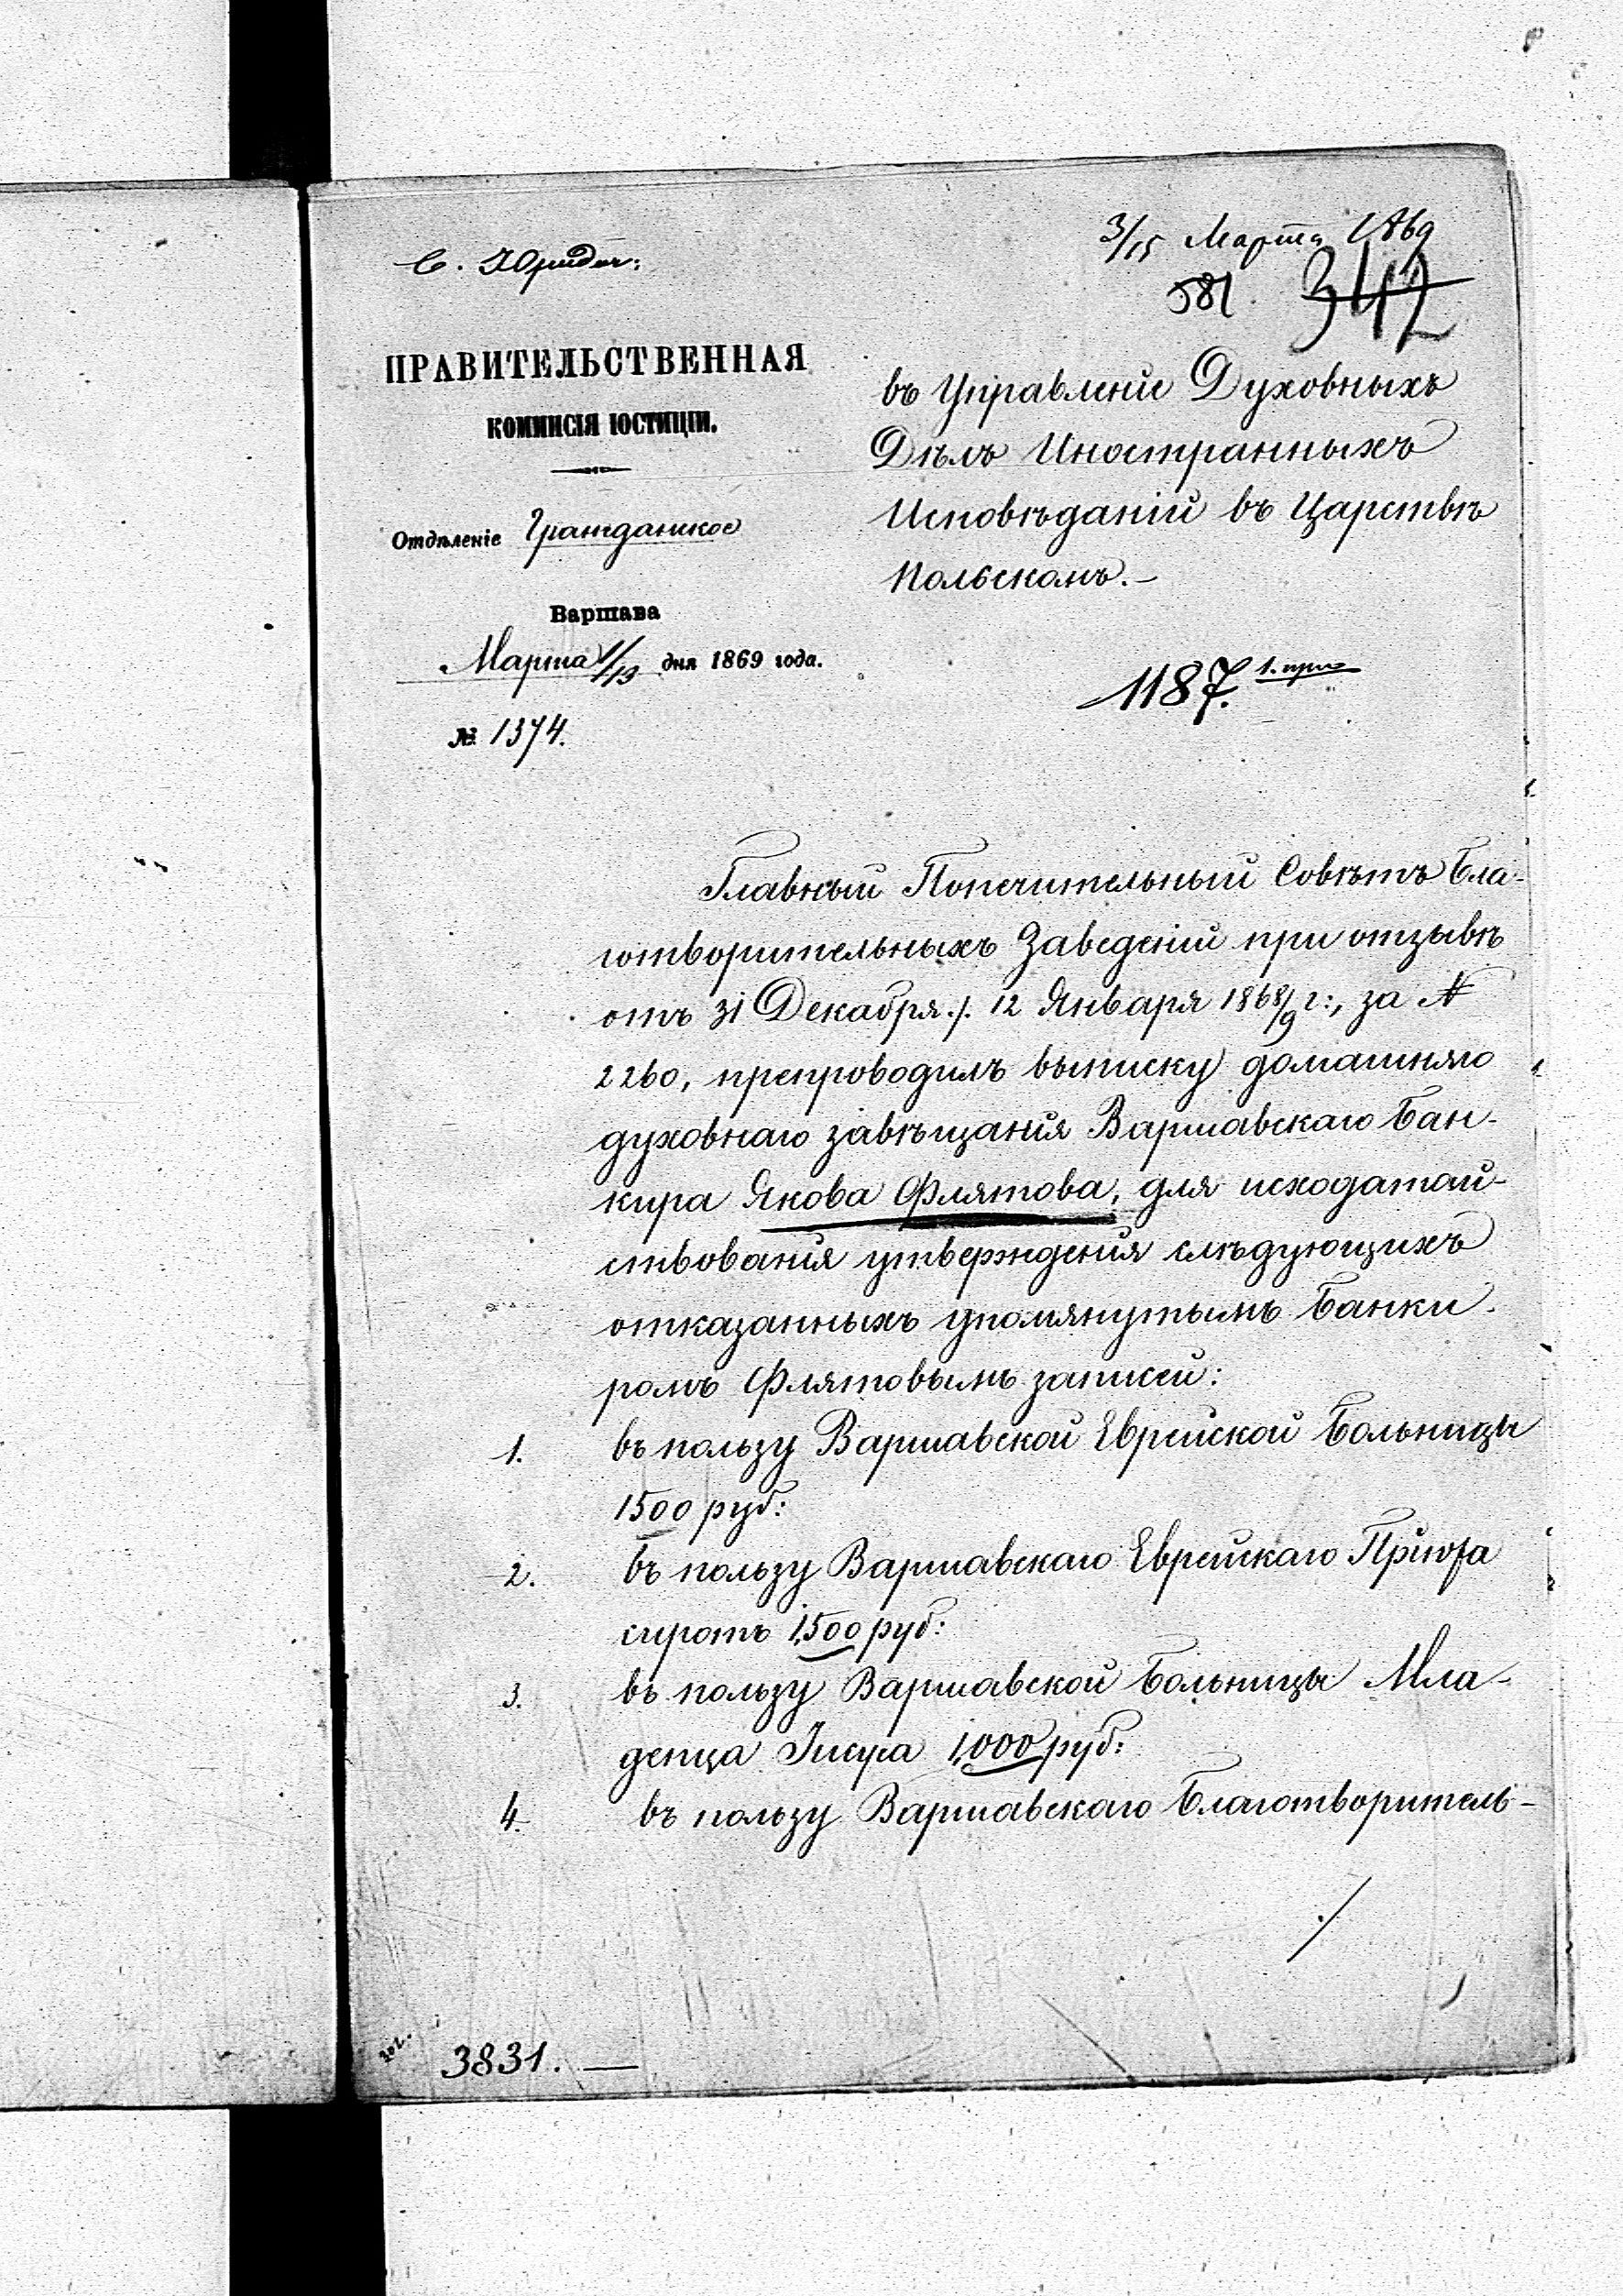 С. Юридич:
3/15 Марта 1869
581. 342
ПРАВИТЕЛЬСТВЕННАЯ
КОММИСІЯ ЮСТИЦІИ.
Отдѣленіе Гражданское
Варшава
Марта 1/13 дня 1869 года.
№ 1374.
въ Управленіе Духовныхъ
Дѣлъ Иностранныхъ
Исповѣданій въ Царствѣ
Польскомъ.-
1187. 1. прил
Главный Попечительный Совѣтъ Бла-
готворительныхъ Заведеній при отзывѣ
отъ 31 Декабря ./. 12 Января 1868/9 г:, за №
2260, препроводилъ выписку домашняго
духовнаго завѣщанія Варшавскаго Бан-
кира Якова Флятова, для исходатай-
ствованія утвержденія слѣдующихъ
отказанныхъ упомянутымъ Банки-
ромъ Флятовымъ записей:
1. въ пользу Варшавской Еврейской Больницы
1500 руб:
2. въ пользу Варшавскаго Еврейскаго Пріюта
сиротъ 1,500 руб:
3. въ пользу Варшавской Больницы Мла-
денца Іисуса 1,000 руб:
4. въ пользу Варшавскаго Благотворитель-
./.
3831. —